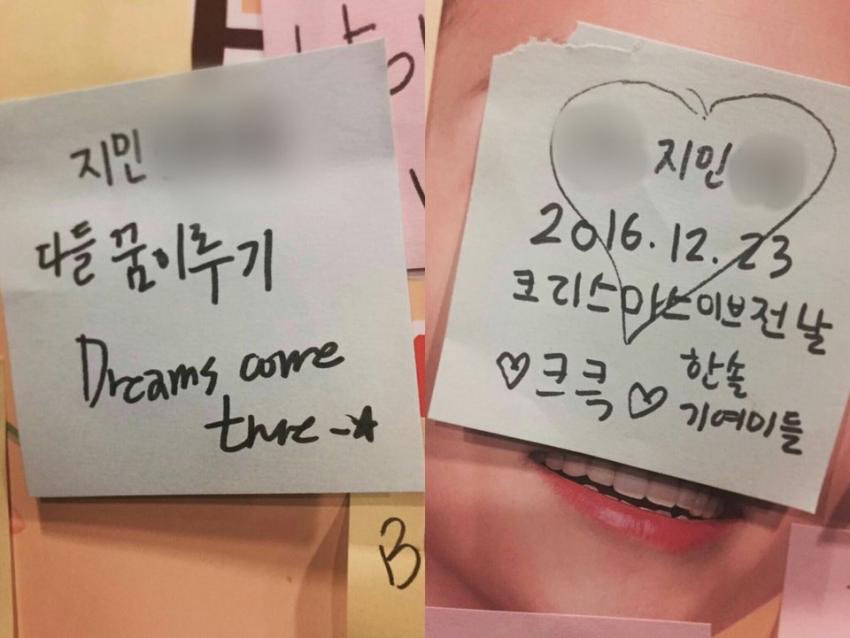 지민
다들 꿈이루기
Dreams come
thre -☆
지민
2016. 12. 23
크리스마스이브전날
♡크큭♡ 한솔
기여미들
B